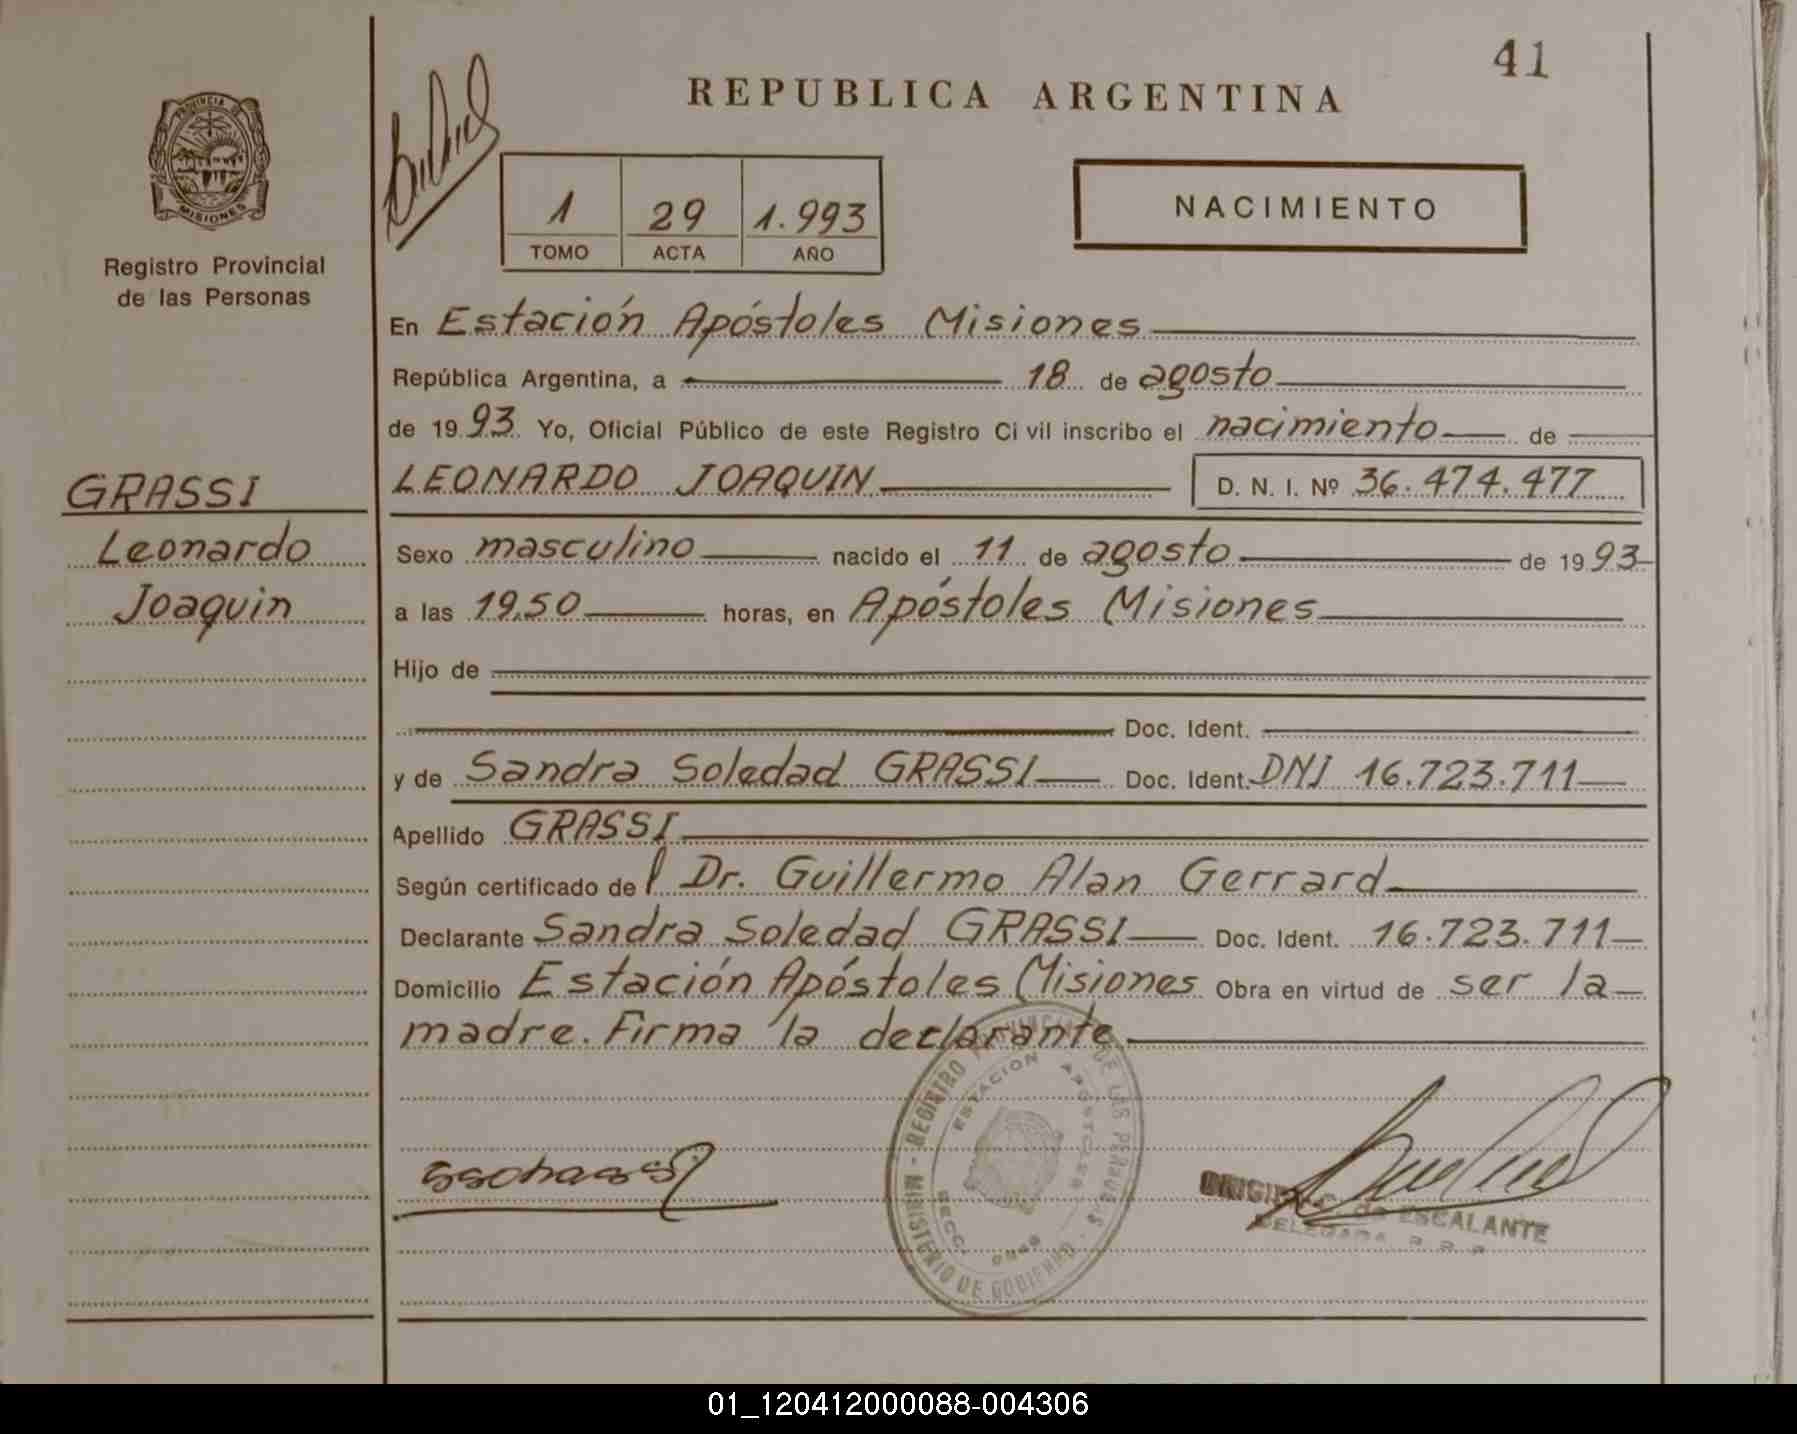 41
REPUBLICA ARGENTINA
PROVINCIA DE
MISIONES
Registro Provincial
de las Personas
1 29 1.993
TOMO ACTA AÑO
NACIMIENTO
En Estación Apóstoles Misiones
República Argentina, a 18 de agosto
de 1993 Yo, Oficial Público de este Registro Ci vil inscribo el nacimiento de
GRASSI
Leonardo
Joaquin
LEONARDO JOAQUIN D. N. I. Nº 36.474.477
Sexo masculino nacido el 11 de agosto de 1993
a las 19,50 horas, en Apóstoles Misiones
Hijo de
Doc. Ident.
y de Sandra Soledad GRASSI Doc. Ident. DNI 16.723.711
Apellido GRASSI
Según certificado del Dr. Guillermo Alan Gerrard
Declarante Sandra Soledad GRASSI Doc. Ident. 16.723.711
Domicilio Estación Apóstoles Misiones Obra en virtud de ser la
madre. Firma la declarante
MINISTERIO DE GOBIERNO - REGISTRO PROVINCIAL DE LAS PERSONAS
ESTACION APOSTOLES
SECC.
de ESCALANTE
DELEGADA
01_120412000088-004306